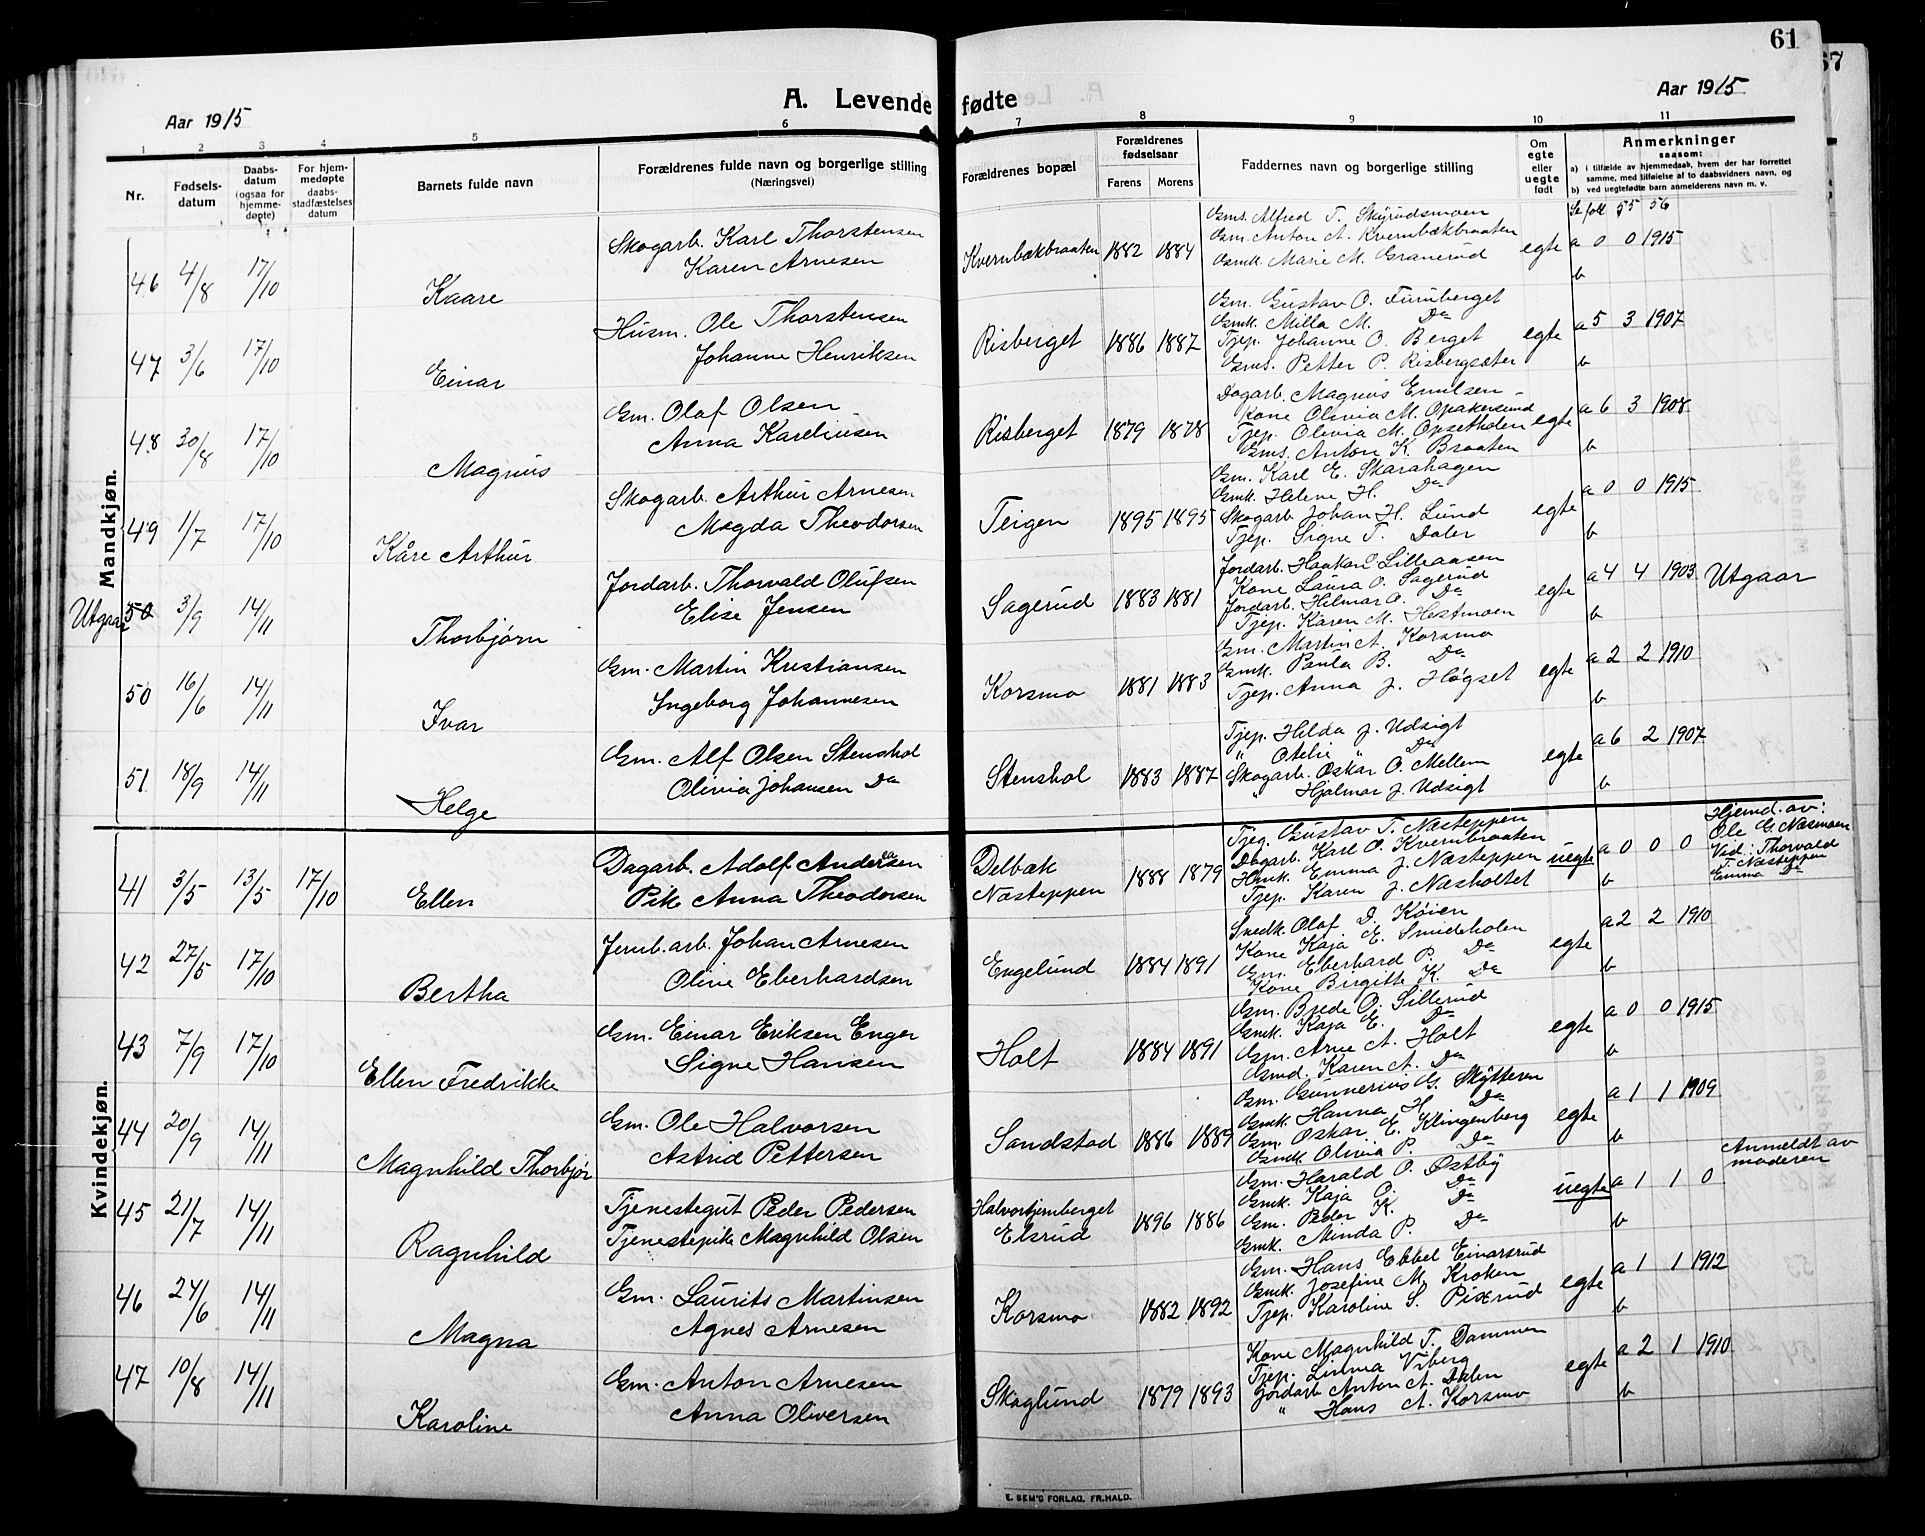 61
67
Aar 1915
A. Levende fødte
Aar 1915
1 2 3 4 5 6 7 8 9 10 11
Nr.
Fødsels-
datum
Daabs-
datum
(ogsaa for
hjemme-
døpte)
For hjem-
medøpte
daabs-
stadfæstelses
datum
Barnets fulde navn
Forældrenes fulde navn og borgerlige stilling
(Næringsvei)
Forældrenes bopæl
Forældrenes
fødselsaar
Farens Morens
Faddernes navn og borgerlige stilling
Om
egte
eller
uegte
født
Anmerkninger
saasom:
a) i tilfælde av hjemmedaab, hvem der har forrettet
samme, med tilføielse af to daabsvidners navn, og
b) ved uegtefødte barn anmelderens navn m. v.
Mandkjøn.
Se foll 55 56
46 4/8 17/10 Kaare
Skogarb. Karl Thorstensen
Karen Arnesen
Kvernbækbraaten 1882 1884
Gms. Alfred T. Skyrudsmoen
Gsm. Anton A. Kvernbækbraaten
Gsmk. Marie M. Granerud
egte a 0 0 1915
b
47 3/6 17/10 Einar
Husm. Ole Thorstensen
Johanne Henriksen
Risberget 1886 1887
Gm. Gustav O. Furuberget
Gmk. Milla M. Do
Tjep. Johanne O. Berget
Gms. Petter P. Risbergsæter
egte a 5 3 1907
b
48 30/8 17/10 Magnus
Gm. Olaf Olsen
Anna Karelinsen
Risberget 1879 1878
Dagarb. Magnus Emilsen
Kone Olivia M. Opakersund
Tjep. Olivia M. Opsetholen
Gms. Anton K. Braaten
egte a 6 3 1908
b
49 1/7 17/10 Kåre Arthur
Skogarb. Arthur Arnesen
Magda Theodorsen
Teigen 1895 1895
Gm. Karl E. Skarahagen
Gmk. Helene H. Do
Skogarb. Johan H. Lund
Tjep. Signe T. Daler
egte a 0 0 1915
b
Utgaar 50 3/9 14/11 Thorbjørn
Jordarb. Thorvald Olufsen
Elise Jensen
Sagerud 1883 1881
Jordarb. Haakon Lilleaasen
Kone Laura O. Sagerud
Jordarb. Hilmar O. Do
Tjep. Karen M. Hestmoen
egte a 4 4 1903 Utgaar
b
50 16/6 14/11 Ivar
Gm. Martin Kristiansen
Ingeborg Johannesen
Korsmo 1881 1883
Gm. Martin A. Korsmo
Gmk. Paula B. Do
Tjep. Anna J. Høgset
egte a 2 2 1910
b
51 18/9 14/11 Helge
Gm. Alf Olsen Stenshol
Olivia Johansen Do
Stenshol 1883 1887
Tjep. Hilda J. Udsigt
" Otelie " Do
Skogarb. Oskar O. Mellem
" Hjalmar J. Udsigt
egte a 6 2 1907
b
Kvindekjøn.
41 3/5 13/5 17/10 Ellen
Dagarb. Adolf Andersen
Pike Anna Theodorsen
Delbæk
Næsteppen 1888 1879
Tjeg. Gustav T. Næsteppen
Dagarb. Karl O. Kvernbraaten
Hmk. Emma J. Næsteppen
Tjep. Karen J. Næsholtet
uegte a 0 0 0
b
Hjemd. av:
Ole G. Næsmoen
Vid.: Thorvald
T. Næsteppen
Emma Do
42 27/5 17/10 Bertha
Jernb.arb. Johan Arnesen
Oline Eberhardsen
Engelund 1884 1891
Snedk. Olaf D. Køien
Kone Kaja E. Smideholen
Gm. Eberhard P. Do
Kone Birgitte K. Do
egte a 2 2 1910
b
43 7/9 17/10 Ellen Fredrikke
Gm. Einar Eriksen Enger
Signe Hansen
Holt 1884 1891
Gm. Brede O. Sillerud
Gmk. Kaja E. Do
Gm. Arne A. Holt
Gmd. Karen A. Do
egte a 0 0 1915
b
44 20/9 14/11 Magnhild Thorbjør
Gm. Ole Halvorsen
Astrid Pettersen
Sandstad 1886 1889
Gm. Gunnerius G. Skytteren
Gmk. Hanna H. Do
Gm. Oskar E. Klingenberg
Gmk. Olivia P. Do
egte a 1 1 1909
b
45 21/7 14/11 Ragnhild
Tjenestegut Peder Pedersen
Tjenestepike Magnhild Olsen
Halvortjernberget
Elsrud 1896 1886
Gm. Harald O. Østby
Gmk. Kaja O. Do
Gm. Peder K. Do
Gmk. Minda P. Do
uegte a 1 1 0
b
Anmeldt av
moderen
46 24/6 14/11 Magna
Gm. Laurits Martinsen
Agnes Arnesen
Korsmo 1882 1892
Gm. Hans Ebbel Einarsrud
Gmk. Josefine M. Kroken
Tjep. Karoline S. Pixrud
egte a 1 1 1912
b
47 10/8 14/11 Karoline
Gm. Anton Arnesen
Anna Oliversen
Skoglund 1879 1893
Kone Magnhild T. Dammen
Tjep. Linna Viberg
Jordarb. Anton A. Dalen
" Hans A. Korsmo
egte a 2 1 1910
b
E. SEM'S FORLAG, FR.HALD.